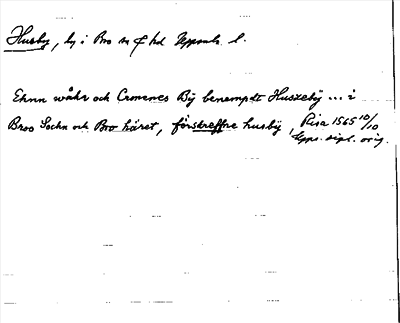 Husby, by i Bro sn o hd Uppsala l.
Ehnn wåhr och Cronenes Bÿ benempdt Huszebÿ ... i
Broo Sochn och Bro häret, förskreffne husbÿ, Risa 1565 10/10
Upps. dipl. orig.